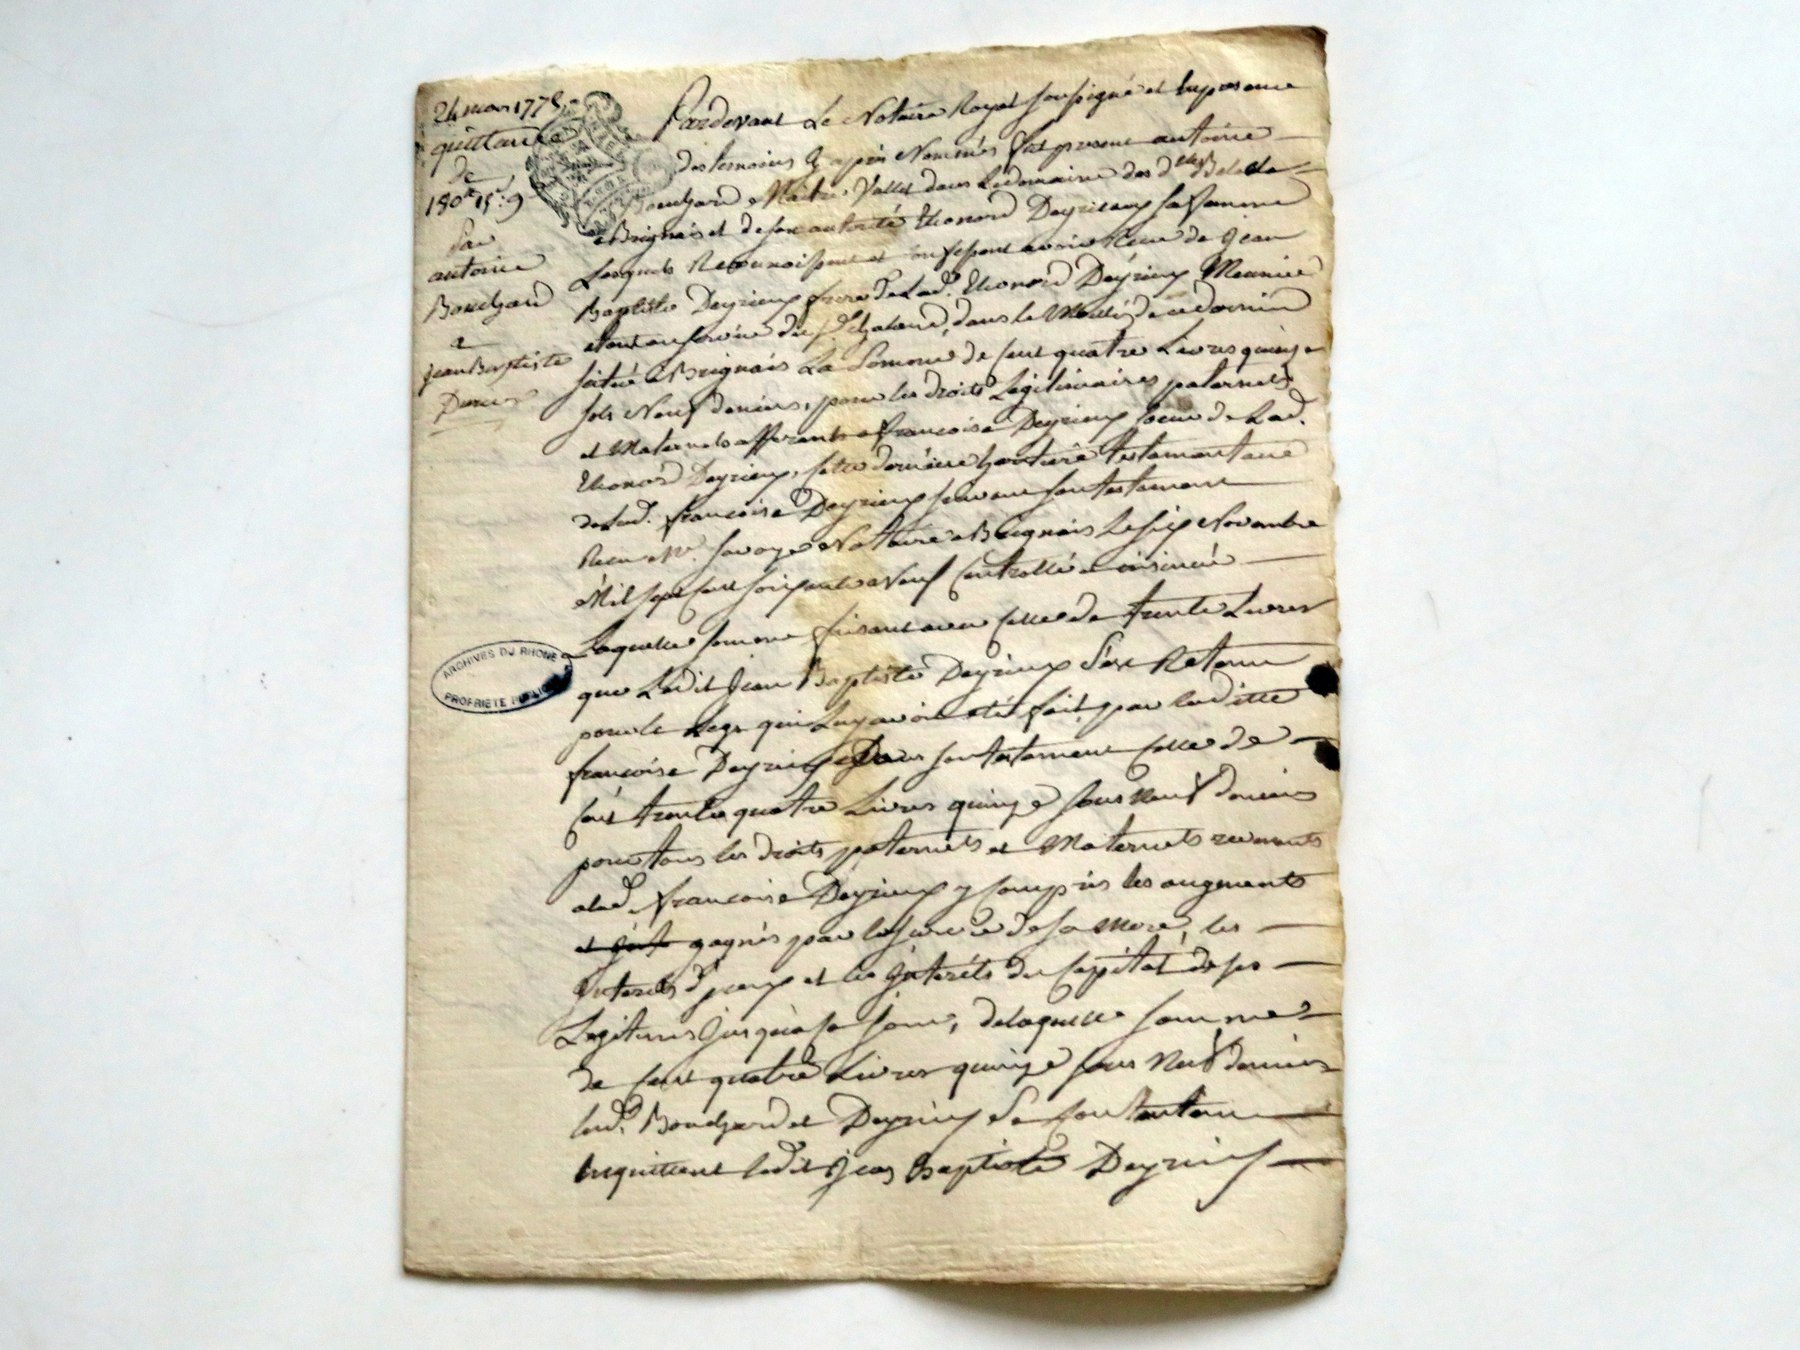 24 mars 1775
quittance
de
180# 15s 9
Par
antoine
Bouchard
a
jean Baptiste
Deyrieux
Pardevant Le Notaire Royal soussigné et En presence
des temoins Cy apres Nommés fut present antoine
Bouchard Maitre Vallet dans Le domaine des dlles
a Brignais et de son autorité Eleonord Deyrieux sa femme
Lesquels Reconnoissent et confessent avoir Recu de jean
Baptiste Deyrieux frere de Lad. Eleonord Deyrieux Meunier
étant au service du sr. , dans le Moulin de ce dernier
situé a Brignais La Somme de Cent quatre Livres quinze
sols Neuf deniers, pour les droits Legitimaires paternels
et Maternels afferants a francoise Deyrieux soeur de Lad.
Eleonord Deyrieux, cette derniere heritiere testamentaire
de Lad. francoise Deyrieux suivant son testament
Recu Me. Savoye Notaire a Brignais Le six Novembre
Mil sept cent soixante Neuf Controllé et insinué
Laquelle somme faisant avec celle de trente Livres
que Ledit jean Baptiste Deyrieux s'est Retenu
pour le Legs qui Luy avoit eté fait par laditte
francoise Deyrieux Dans son testament celle de
Cent trente quatre Livres quinze sous Neuf deniers
pour tous les droits paternels et Maternels revenants
a lad. francoise Deyrieux y Compris les augments
gagnés par la survie de sa Mere, les
Interets d'iceux et les Interéts du Capital de ses
Legitimes jusqu'a ce jour, de laquelle somme
de Cent quatre Livres quinze sous Neuf deniers
led. Bouchard et Deyrieux se Contentent
En quittent ledit jean Baptiste Deyrieux
ARCHIVES DU RHONE
PROPRIETE PUBLIQUE